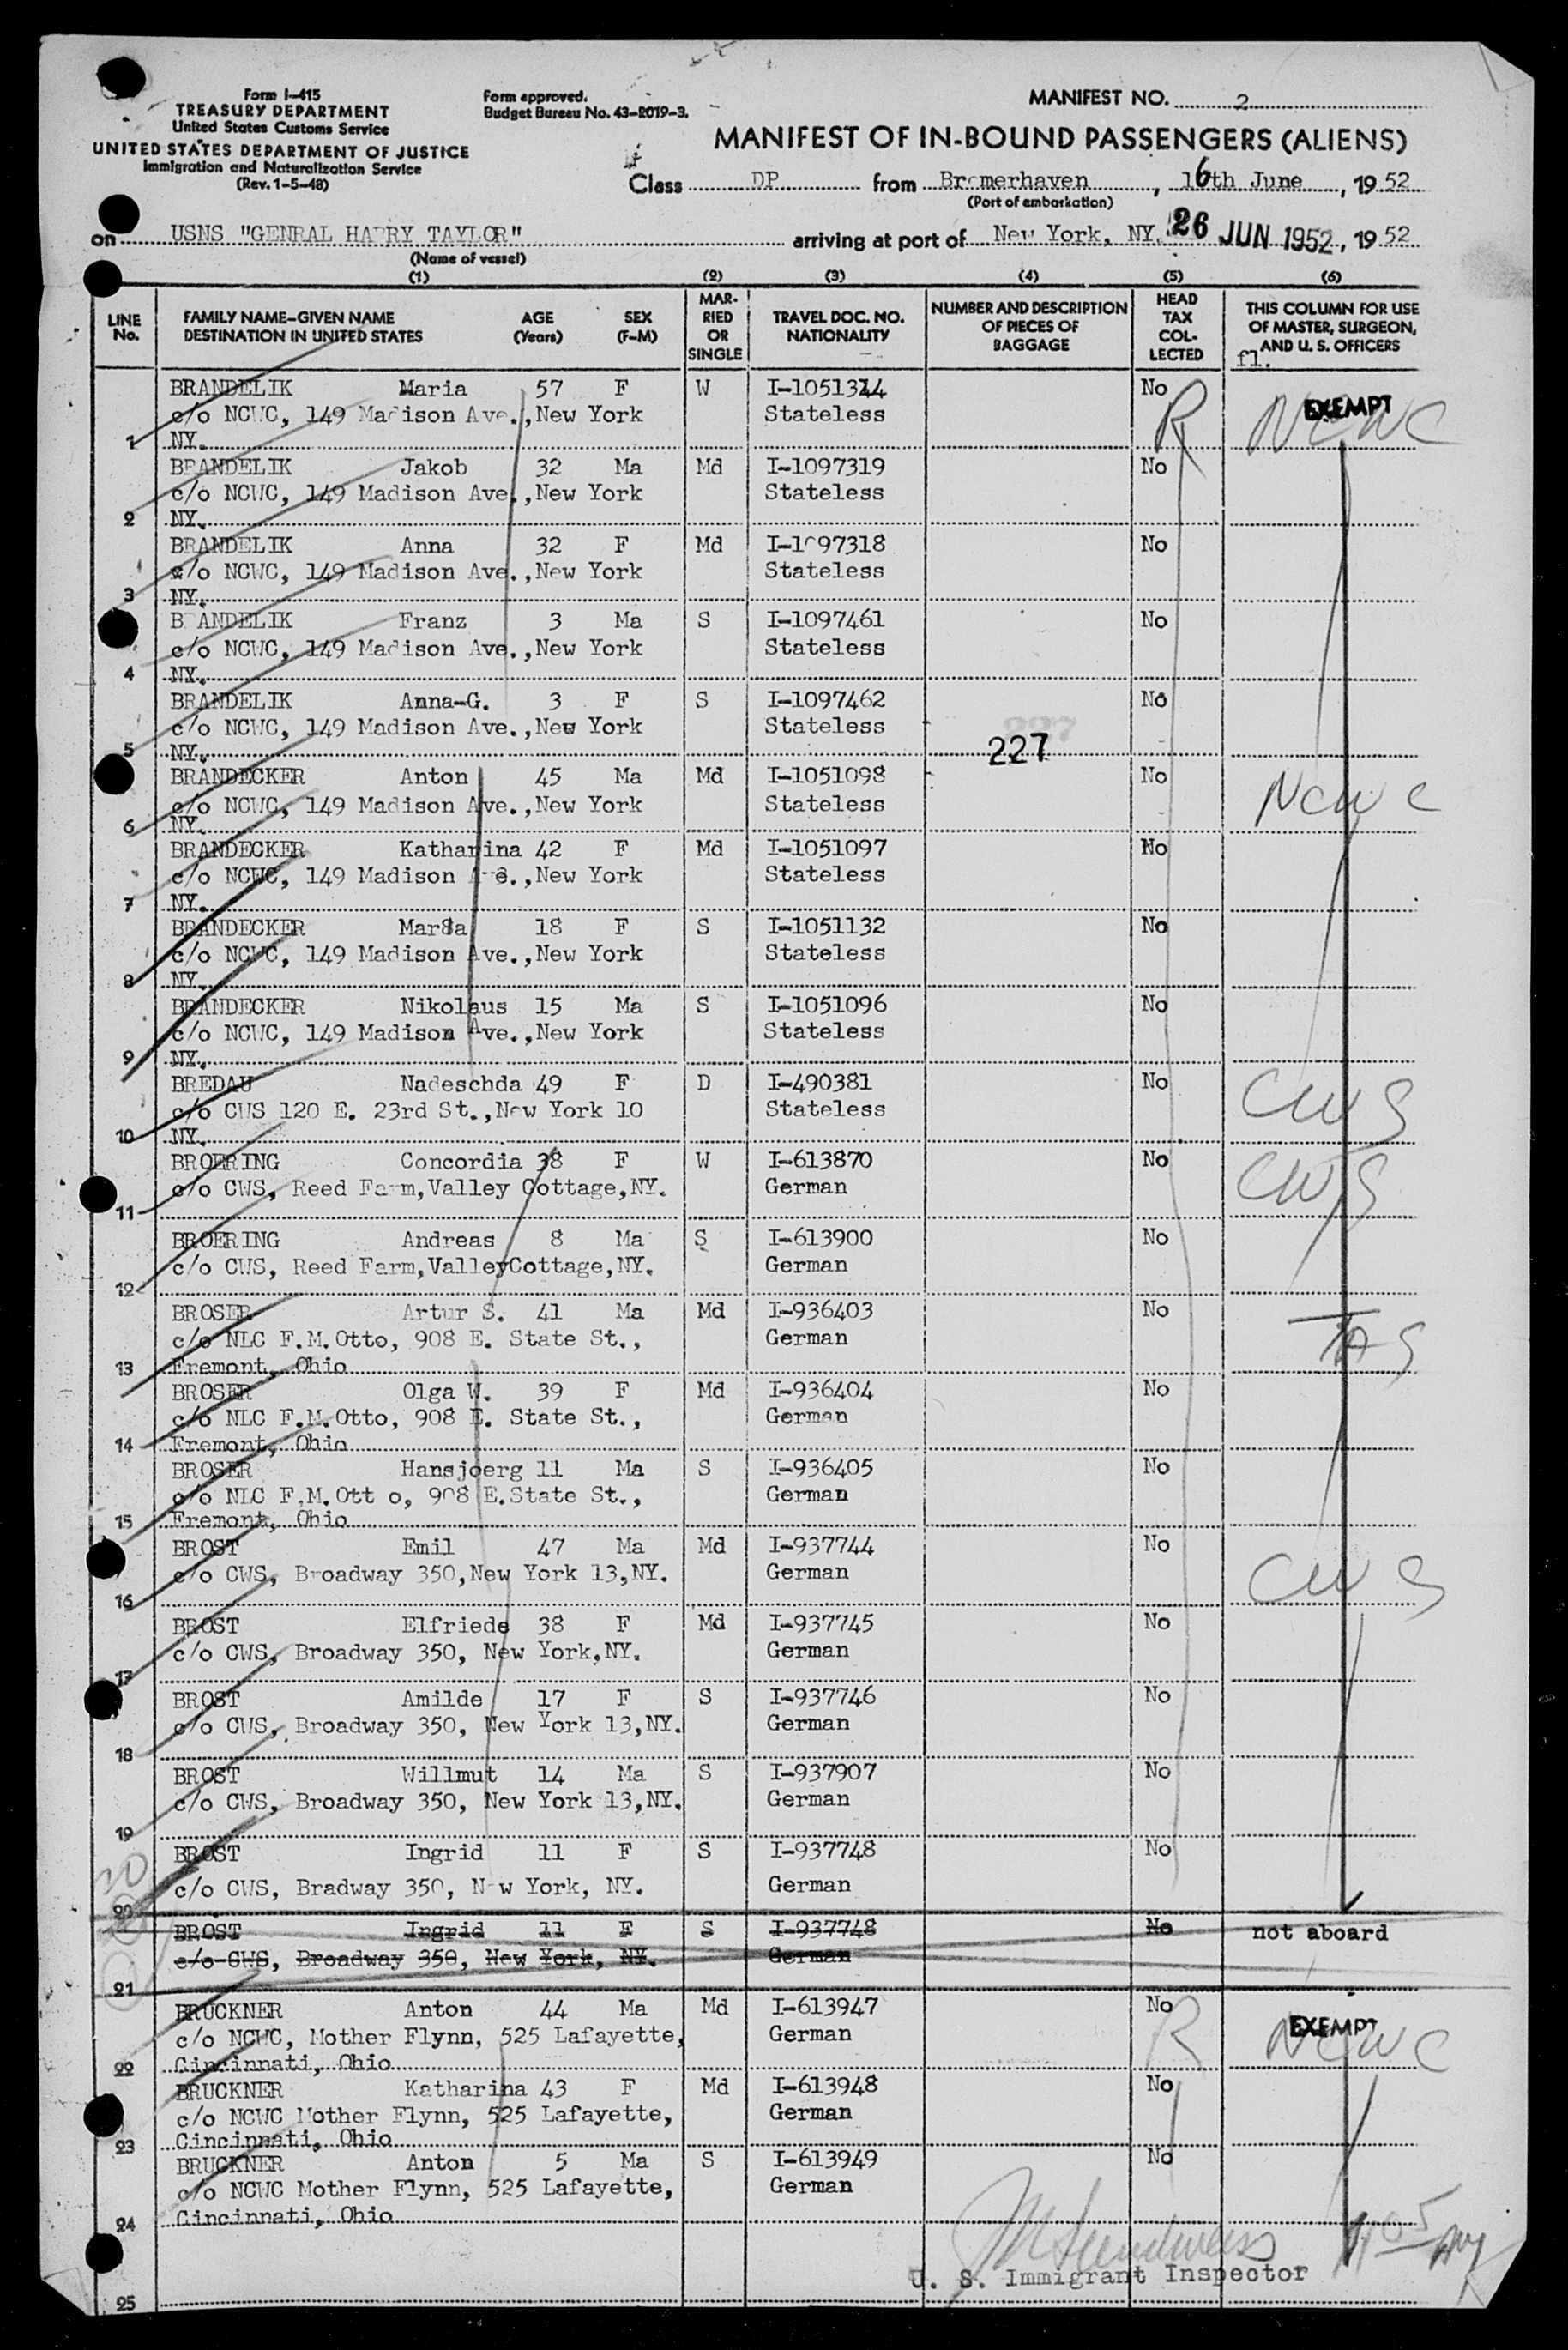 Form I-415
TREASURY DEPARTMENT
United States Customs Service
UNITED STATES DEPARTMENT OF JUSTICE
Immigration and Naturalization Service
(Rev. 1-5-48)
Form approved.
Budget Bureau No. 43-R019-3.
MANIFEST NO. 2
MANIFEST OF IN-BOUND PASSENGERS (ALIENS)
Class DP from Bremerhaven, 16th June, 19 52
(Port of embarkation)
on USNS "GENRAL HARRY TAYLOR" arriving at port of New York, NY. 26 JUN 1952, 19 52
(Name of vessel)
(1) (2) (3) (4) (5) (6)
LINE No. FAMILY NAME-GIVEN NAME DESTINATION IN UNITED STATES AGE (Years) SEX (F-M) MARRIED OR SINGLE TRAVEL DOC. NO. NATIONALITY NUMBER AND DESCRIPTION OF PIECES OF BAGGAGE HEAD TAX COLLECTED THIS COLUMN FOR USE OF MASTER, SURGEON, AND U. S. OFFICERS
fl.
BRANDELIK Maria 57 F W I-1051314 No R EXEMPT NCWC
c/o NCWC, 149 Madison Ave.,New York Stateless
1 NY.
BRANDELIK Jakob 32 Ma Md I-1097319 No
c/o NCWC, 149 Madison Ave.,New York Stateless
2 NY.
BRANDELIK Anna 32 F Md I-1097318 No
c/o NCWC, 149 Madison Ave.,New York Stateless
3 NY.
BRANDELIK Franz 3 Ma S I-1097461 No
c/o NCWC, 149 Madison Ave.,New York Stateless
4 NY.
BRANDELIK Anna-G. 3 F S I-1097462 No
c/o NCWC, 149 Madison Ave.,New York Stateless
5 NY. 227
BRANDECKER Anton 45 Ma Md I-1051098 No NCWC
c/o NCWC, 149 Madison Ave.,New York Stateless
6 NY.
BRANDECKER Katharina 42 F Md I-1051097 No
c/o NCWC, 149 Madison Ave.,New York Stateless
7 NY.
BRANDECKER Maria 18 F S I-1051132 No
c/o NCWC, 149 Madison Ave.,New York Stateless
8 NY.
BRANDECKER Nikolaus 15 Ma S I-1051096 No
c/o NCWC, 149 Madison Ave.,New York Stateless
9 NY.
BREDAU Nadeschda 49 F D I-490381 No CWS
c/o CWS 120 E. 23rd St.,New York 10 Stateless
10 NY.
BROERING Concordia 38 F W I-613870 No CWS
c/o CWS, Reed Farm,Valley Cottage,NY. German
11
BROERING Andreas 8 Ma S I-613900 No
c/o CWS, Reed Farm,ValleyCottage,NY. German
12
BROSER Artur S. 41 Ma Md I-936403 No
c/o NLC F.M.Otto, 908 E. State St., German
13 Fremont, Ohio
BROSER Olga W. 39 F Md I-936404 No
c/o NLC F.M.Otto, 908 E. State St., German
14 Fremont, Ohio
BROSER Hansjoerg 11 Ma S I-936405 No
c/o NLC F.M.Ott o, 908 E.State St., German
15 Fremont, Ohio
BROST Emil 47 Ma Md I-937744 No CWS
c/o CWS, Broadway 350,New York 13,NY. German
16
BROST Elfriede 38 F Md I-937745 No
c/o CWS, Broadway 350, New York,NY. German
17
BROST Amilde 17 F S I-937746 No
c/o CWS, Broadway 350, New York 13,NY. German
18
BROST Willmut 14 Ma S I-937907 No
c/o CWS, Broadway 350, New York 13,NY. German
19
BROST Ingrid 11 F S I-937748 No
c/o CWS, Bradway 350, New York, NY. German
20
BROST Ingrid 11 F S I-937748 No not aboard
c/o CWS, Broadway 350, New York, NY. German
21
BRUCKNER Anton 44 Ma Md I-613947 No R EXEMPT NCWC
c/o NCWC, Mother Flynn, 525 Lafayette, German
22 Cincinnati, Ohio
BRUCKNER Katharina 43 F Md I-613948 No
c/o NCWC Mother Flynn, 525 Lafayette, German
23 Cincinnati, Ohio
BRUCKNER Anton 5 Ma S I-613949 No
c/o NCWC Mother Flynn, 525 Lafayette, German
24 Cincinnati, Ohio
U. S. Immigrant Inspector
25